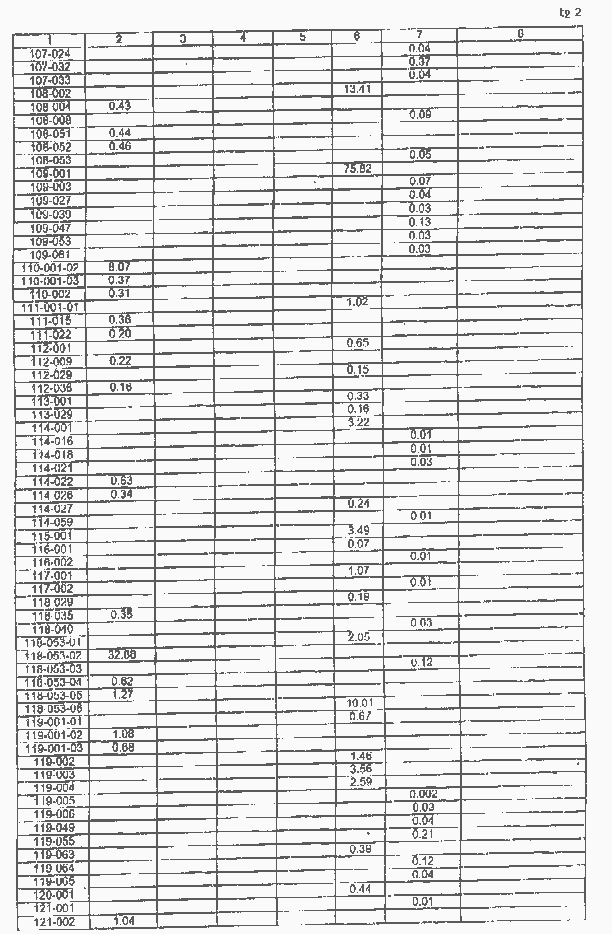 tg 2
1 2 3 4 5 6 7 8
107-024 0.04
107-032 0.37
107-033 0.04
108-002 13.41
108-004 0.43
108-008 0.09
108-051 0.44
108-052 0.46
108-053 0.05
109-001 75.82
109-003 0.07
109-027 0.04
109-039 0.03
109-047 0.13
109-053 0.03
109-061 0.03
110-001-02 8.07
110-001-03 0.37
110-002 0.31
111-001-01 1.02
111-015 0.36
111-022 0.20
112-001 0.65
112-009 0.22
112-029 0.15
112-036 0.16
113-001 0.33
113-029 0.16
114-001 3.22
114-016 0.01
114-018 0.01
114-021 0.03
114-022 0.63
114-026 0.34
114-027 0.24
114-059 0.01
115-001 3.49
116-001 0.07
116-002 0.01
117-001 1.07
117-002 0.01
118-029 0.19
118-035 0.35
118-040 0.03
118-053-01 2.05
118-053-02
118-053-03 0.12
118-053-04 0.62
118-053-05 1.27
118-053-06 10.01
119-001-01 0.67
119-001-02 1.08
119-001-03 0.68
119-002 1.46
119-003 3.56
119-004 2.59
119-005 0.002
119-006 0.03
119-049 0.04
119-055 0.21
119-063 0.39
119-064 0.12
119-065 0.04
120-001 0.44
121-001 0.01
121-002 1.04